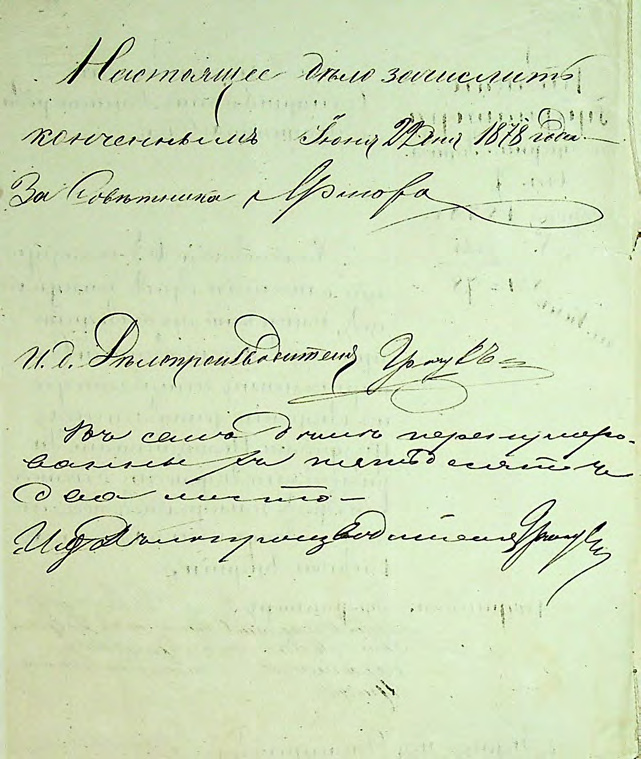 Настоящее дѣло зачислить
конченнымъ Іюня 22 дня 1878 года.—
За Совѣтника
И. д. Дѣлопроизводителя
Въ семъ дѣлѣ перенумеро-
ванныхъ пятьдесятъ
два листа —
И. д. Дѣлопроизводителя